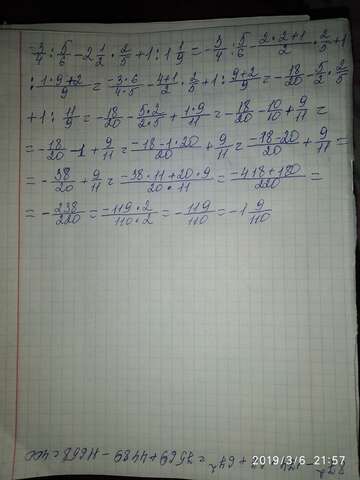 -3/4 : 5/6 - 2 1/2 · 2/5 + 1 : 1 1/9 = -3/4 : 5/6 - 2·2+1/2 · 2/5 + 1
: 1·9+2/9 = -3·6/4·5 - 4+1/2 · 2/5 + 1 : 9+2/9 = -18/20 - 5/2 · 2/5
+ 1 : 11/9 = -18/20 - 5·2/2·5 + 1·9/11 = -18/20 - 10/10 + 9/11 =
= -18/20 - 1 + 9/11 = -18-1·20/20 + 9/11 = -18-20/20 + 9/11 =
= -38/20 + 9/11 = -38·11+20·9/20·11 = -418+180/220 =
= -238/220 = -119·2/110·2 = -119/110 = -1 9/110
= 7569 + 4489 - 11658 = 400
2019/3/6 21:57